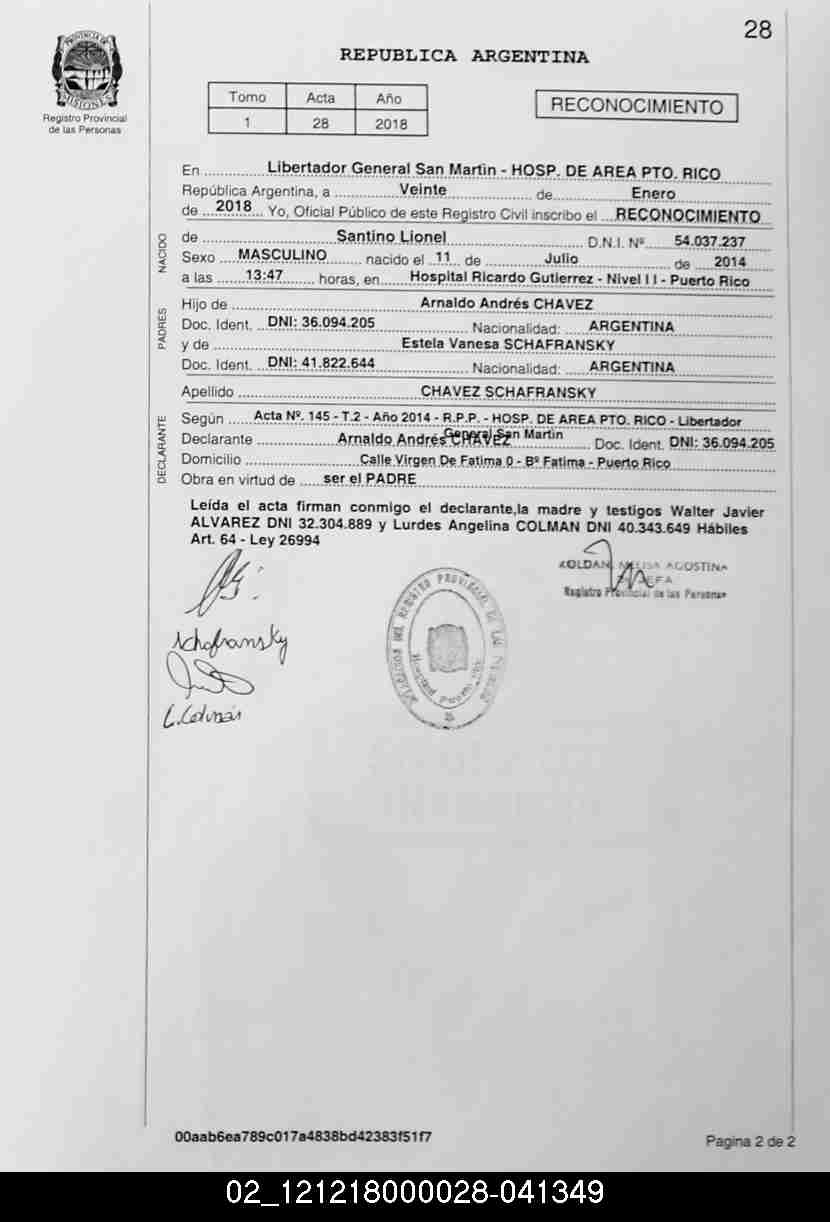 28
REPUBLICA ARGENTINA
PROVINCIA DE
MISIONES
Registro Provincial
de las Personas
Tomo Acta Año
1 28 2018
RECONOCIMIENTO
En Libertador General San Martin - HOSP. DE AREA PTO. RICO
República Argentina, a Veinte de Enero
de 2018 Yo, Oficial Público de este Registro Civil inscribo el RECONOCIMIENTO
NACIDO
de Santino Lionel D.N.I. Nº 54.037.237
Sexo MASCULINO nacido el 11 de Julio de 2014
a las 13:47 horas, en Hospital Ricardo Gutierrez - Nivel I I - Puerto Rico
PADRES
Hijo de Arnaldo Andrés CHAVEZ
Doc. Ident. DNI: 36.094.205 Nacionalidad: ARGENTINA
y de Estela Vanesa SCHAFRANSKY
Doc. Ident. DNI: 41.822.644 Nacionalidad: ARGENTINA
Apellido CHAVEZ SCHAFRANSKY
DECLARANTE
Según Acta Nº. 145 - T.2 - Año 2014 - R.P.P. - HOSP. DE AREA PTO. RICO - Libertador
General San Martin
Declarante Arnaldo Andrés CHAVEZ Doc. Ident. DNI: 36.094.205
Domicilio Calle Virgen De Fatima 0 - Bº Fatima - Puerto Rico
Obra en virtud de ser el PADRE
Leída el acta firman conmigo el declarante,la madre y testigos Walter Javier
ALVAREZ DNI 32.304.889 y Lurdes Angelina COLMAN DNI 40.343.649 Hábiles
Art. 64 - Ley 26994
AGOSTINA
Registro Provincial de las Personas
Schafransky
L. Colman
REGISTRO PROVINCIAL DE LAS
00aab6ea789c017a4838bd42383f51f7
Pagina 2 de 2
02_121218000028-041349